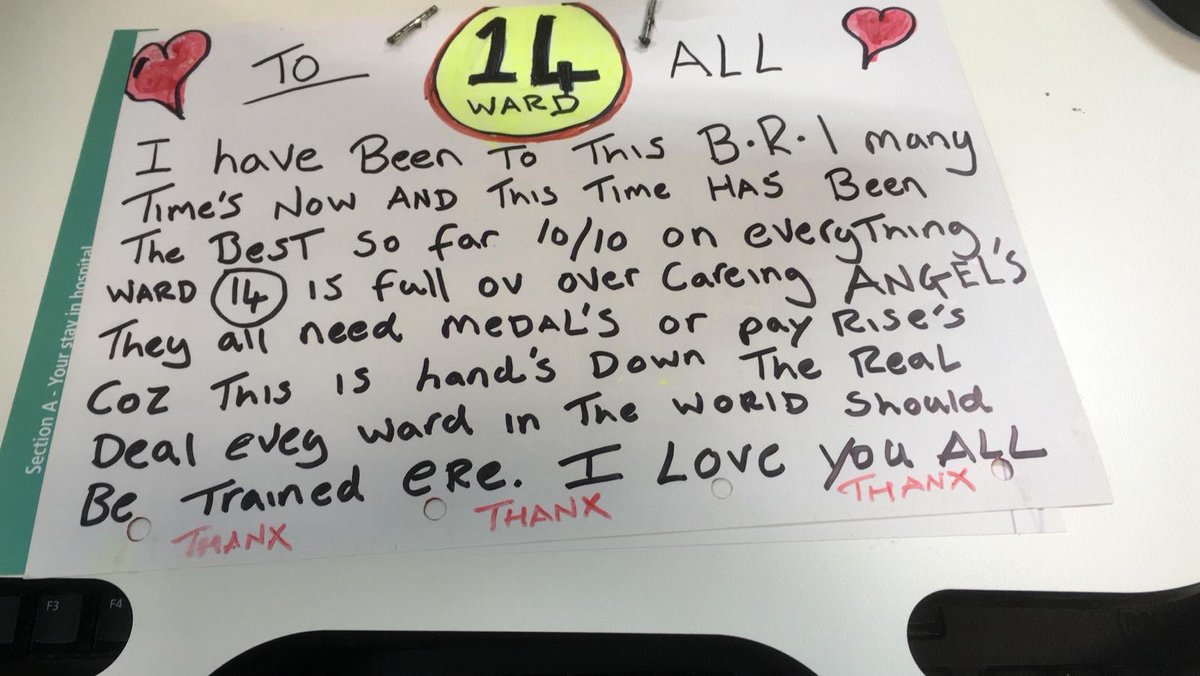 TO 14 WARD ALL
I have Been To This B.R.I many
Time's Now AND This Time HAS Been
The BeST So far 10/10 on everyThing,
WARD 14 is full ov over Careing ANGEL'S
They all need meDAL'S or pay Rise's
Coz This is hand's Down The Real
Deal evey ward in The WORlD Should
Be Trained eRe. I Love you ALL
THANX THANX THANX
Section A - Your stay in hospital
F3 F4